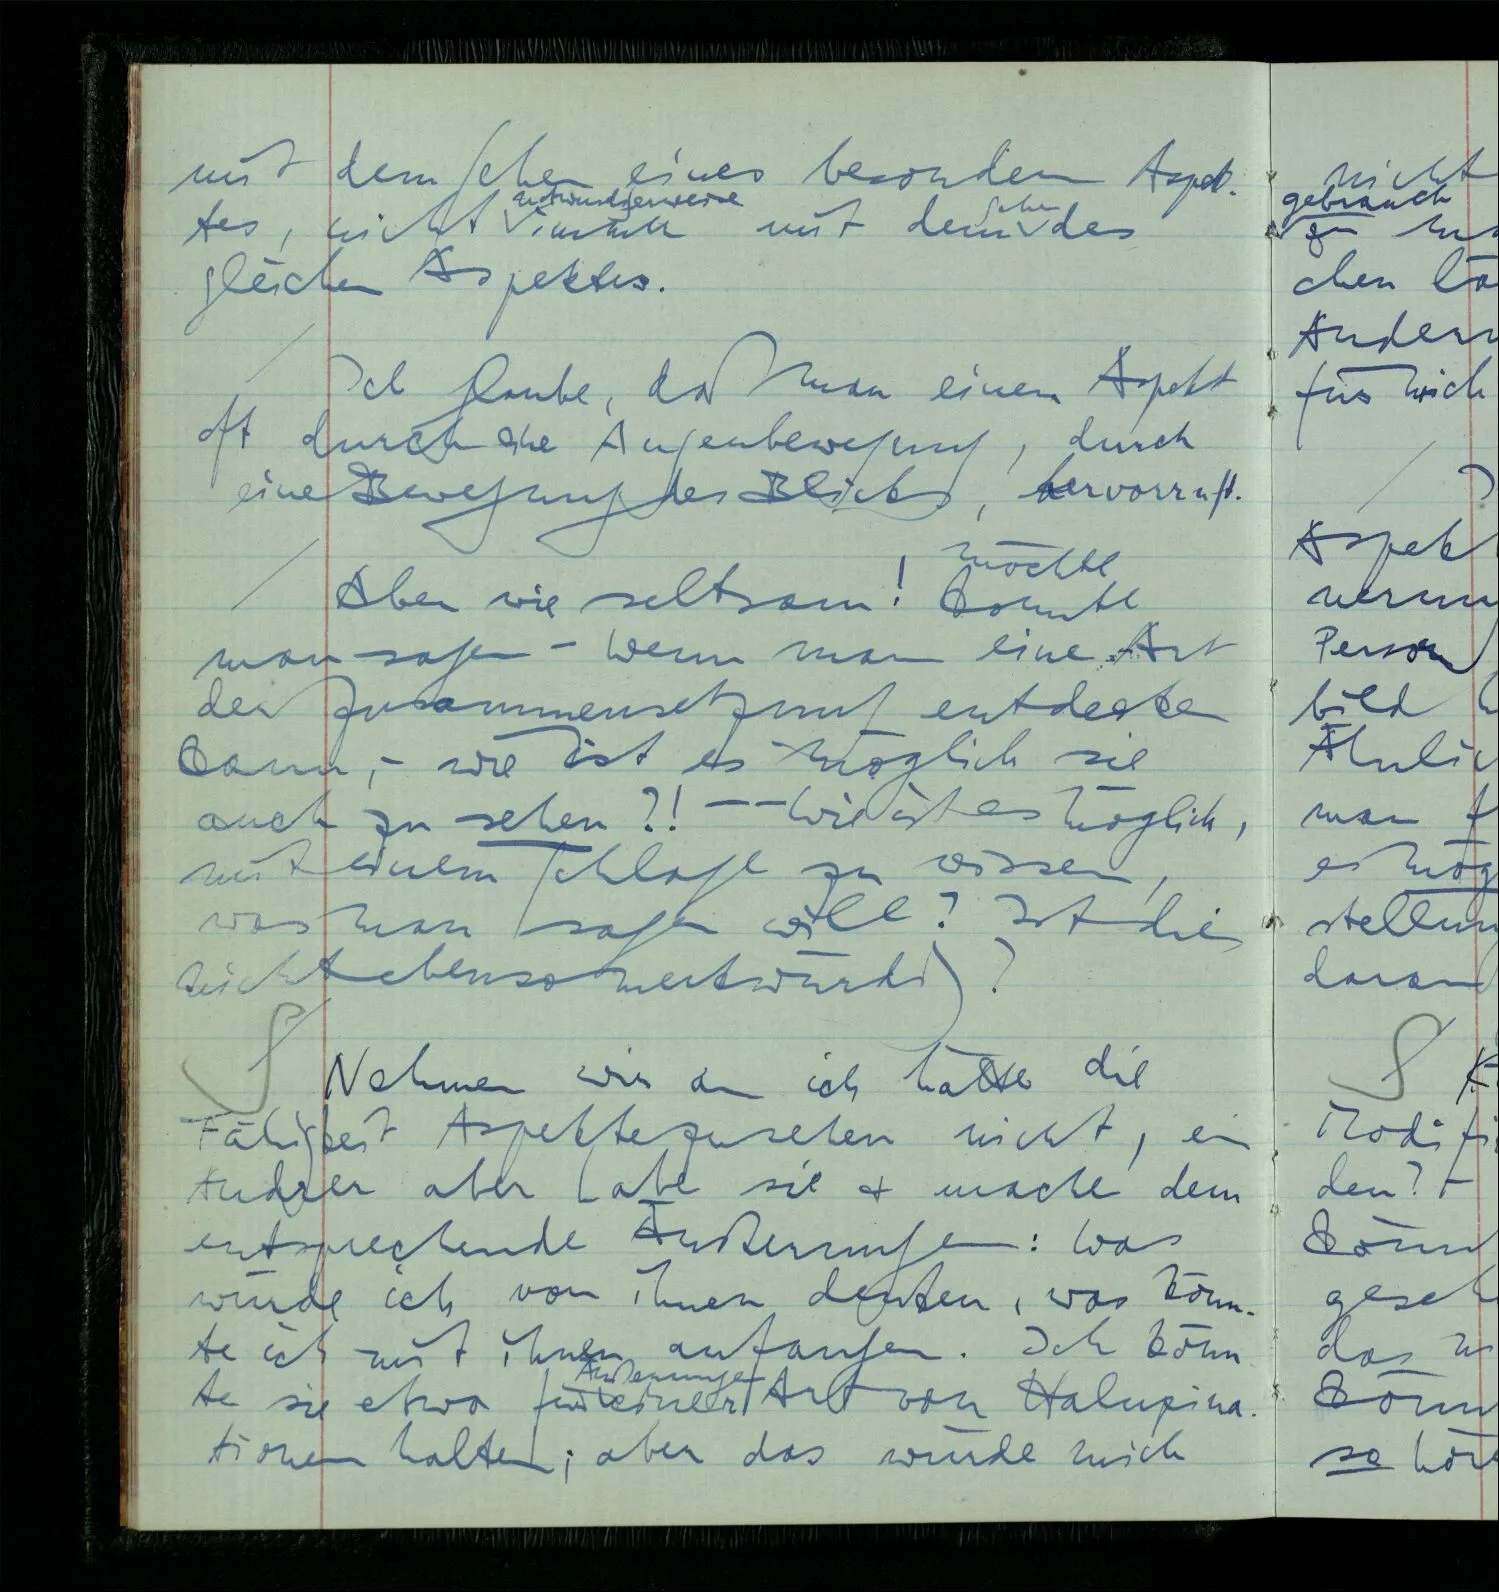 mit dem Sehen eines besondern Aspek-
notwendigerweise
tes, nicht immer mit dem Sehen des
gleichen Aspektes.
/ Ich glaube, daß man einen Aspekt
oft durch eine Augenbewegung, durch
eine Bewegung des Blicks, hervorruft.
möchte
/ Aber wie seltsam! könnte
man sagen – wenn man eine Art
der Zusammensetzung entdecken
kann, – wie ist es möglich sie
auch zu sehen?! –– Wie ist es möglich,
mit einem Schlage zu wissen,
was man sagen will? Ist dies
nicht ebenso merkwürdig?
Nehmen wir an ich hätte die
Fähigkeit Aspekte zu sehen nicht, ein
Andrer aber habe sie & mache dem
entsprechende Äußerungen: Was
würde ich von ihnen denken, was könn-
te ich mit ihnen anfangen. Ich könn
Äußerungen
te sie etwa für einer Art von Haluzina-
tionen halten; aber das würde mich
nicht
gebrauch
zu
chen
Andern
für mich
/
Aspek
Person
bild
Ähnlic
man
es mög
stellun
daran
Modifi
den? –
könn
geseh
das
könn
so